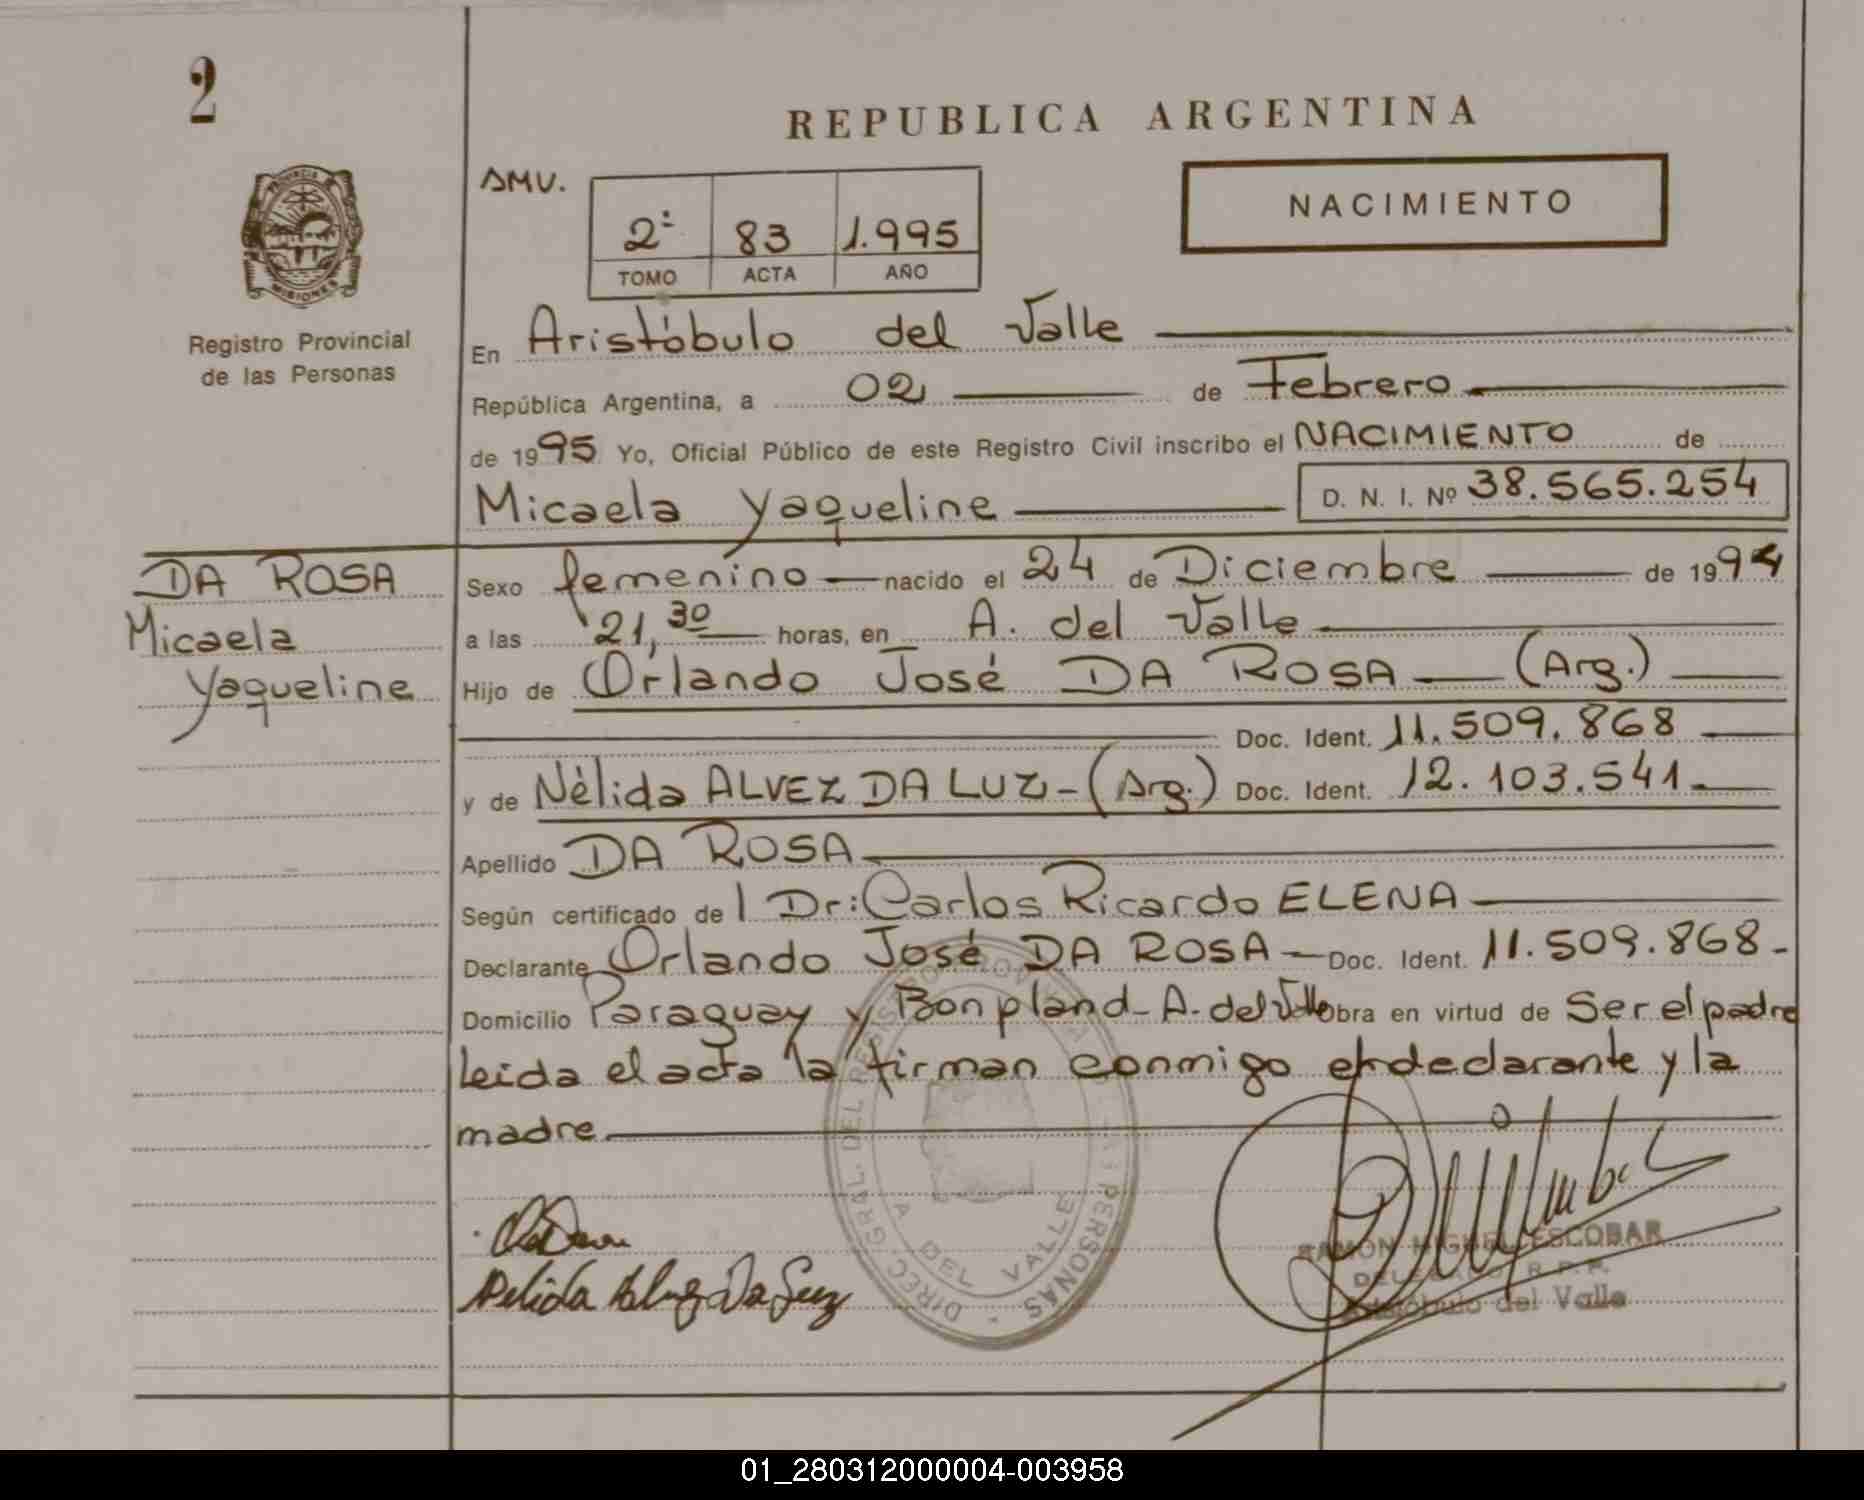 2
REPUBLICA ARGENTINA
PROVINCIA
MISIONES
SMV.
2º 83 1.995
TOMO ACTA AÑO
NACIMIENTO
Registro Provincial
de las Personas
En Aristóbulo del Valle
República Argentina, a 02 de Febrero
de 1995 Yo, Oficial Público de este Registro Civil inscribo el NACIMIENTO de
Micaela Yaqueline D. N. I. Nº 38.565.254
DA ROSA
Micaela
Yaqueline
Sexo femenino nacido el 24 de Diciembre de 1994
a las 21,30 horas, en A. del Valle
Hijo de Orlando José DA ROSA (Arg.)
Doc. Ident. 11.509.868
y de Nélida ALVEZ DA LUZ - (Arg.) Doc. Ident. 12.103.541
Apellido DA ROSA
Según certificado de l Dr: Carlos Ricardo ELENA
Declarante Orlando José DA ROSA Doc. Ident. 11.509.868
Domicilio Paraguay y Bonpland - A. del Valle Obra en virtud de Ser el padre
leida el acta la firman conmigo el declarante y la
madre
Nelida Alvez Da Luz
DIREC. GRAL. DEL REGISTRO PROV. DE LAS PERSONAS
A DEL VALLE
RAMON MIGUEL ESCOBAR
DELEGADO R. P. P.
Aristóbulo del Valle
01_280312000004-003958